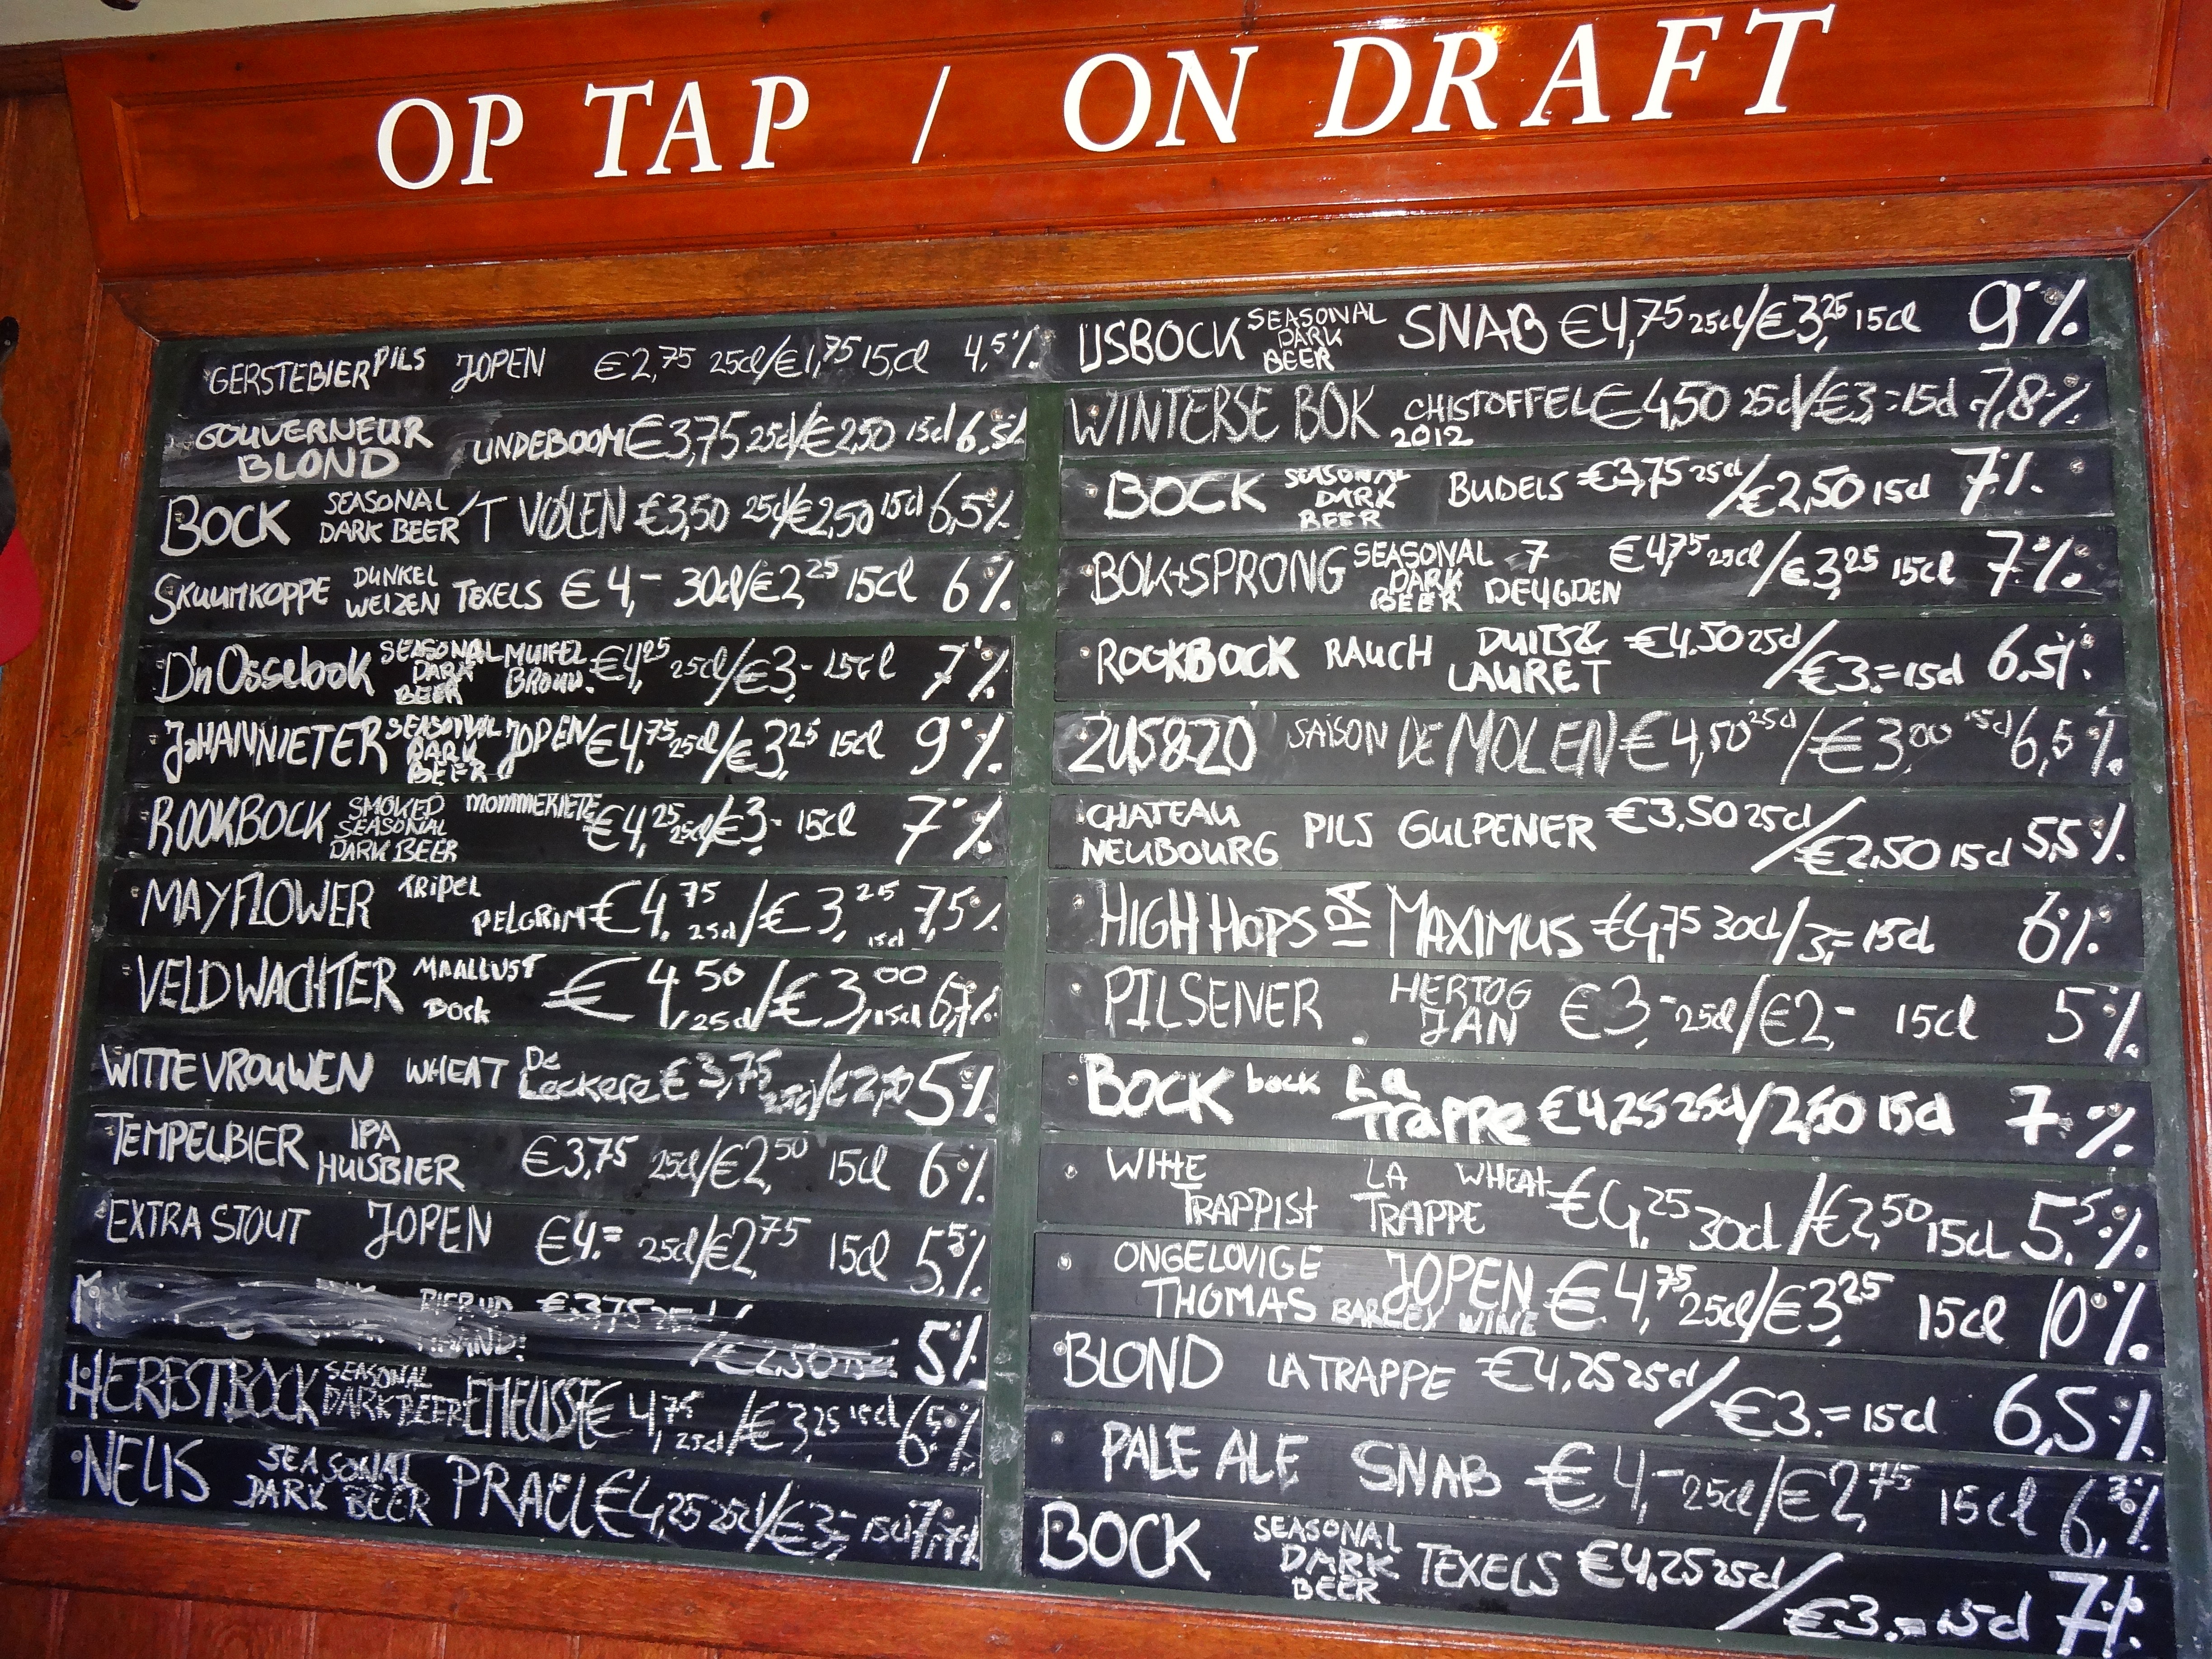 OP TAP / ON DRAFT
GERSTEBIER PILS JOPEN €2,75 25cl/€1,75 15cl 4,5%
GOUVERNEUR BLOND LINDEBOOM €3,75 25cl/€2,50 15cl 6,5%
BOCK SEASONAL DARK BEER 'T VOLEN €3,50 25cl/€2,50 15cl 6,5%
SKUUMKOPPE DUNKEL WEIZEN TEXELS €4,- 30cl/€2,25 15cl 6%
D'n Ossebok SEASONAL DARK BEER MUIFEL BROUW. €4,25 25cl/€3,- 15cl 7%
JOHANNIETER SEASONAL DARK BEER JOPEN €4,75 25cl/€3,25 15cl 9%
ROOKBOCK SMOKED SEASONAL DARK BEER MOMMERIETE €4,25 25cl/€3,- 15cl 7%
MAYFLOWER TRIPEL PELGRIM €4,75 25cl/€3,25 15cl 7,5%
VELDWACHTER MAALLUST Bock €4,50 25cl/€3,00 15cl 6,7%
WITTE VROUWEN WHEAT De Leckere €3,75 25cl/€2,50 5%
TEMPELBIER IPA HUISBIER €3,75 25cl/€2,50 15cl 6%
EXTRA STOUT JOPEN €4.= 25cl/€2,75 15cl 5,5%
€3,75 25cl/€2,50 5%
HERFSTBOCK SEASONAL DARK BEER EMELISSE €4,75 25cl/€3,25 15cl 6,5%
NELIS SEASONAL DARK BEER PRAEL €4,25 25cl/€3,- 15cl
IJSBOCK SEASONAL DARK BEER SNAB €4,75 25cl/€3,25 15cl 9%
WINTERSE BOK CHISTOFFEL 2012 €4,50 25cl/€3=15cl 7,8%
BOCK SEASONAL DARK BEER BUDELS €3,75 25cl/€2,50 15cl 7%
BOK+SPRONG SEASONAL DARK BEER 7 DEUGDEN €4,75 25cl/€3,25 15cl 7%
ROOKBOCK RAUCH DUITS& LAURET €4.50 25cl/€3.=15cl 6,5%
ZUS&ZO SAISON DE MOLEN €4,50 25cl/€3,00 15cl 6,5%
CHATEAU NEUBOURG PILS GULPENER €3,50 25cl/€2,50 15cl 5,5%
HIGH HOPS IPA MAXIMUS €4,75 30cl/3,= 15cl 6%
PILSENER HERTOG JAN €3,- 25cl/€2- 15cl 5%
BOCK bock La Trappe €4,25 25cl/2,50 15cl 7%
WITTE TRAPPIST LA TRAPPE WHEAT €4,25 30cl/€2,50 15cl 5,5%
ONGELOVIGE THOMAS JOPEN BARLEY WINE €4,75 25cl/€3,25 15cl 10%
BLOND LA TRAPPE €4,25 25cl/€3.=15cl 6,5%
PALE ALE SNAB €4,- 25cl/€2,75 15cl 6,3%
BOCK SEASONAL DARK BEER TEXELS €4,25 25cl/€3.=15cl 7%